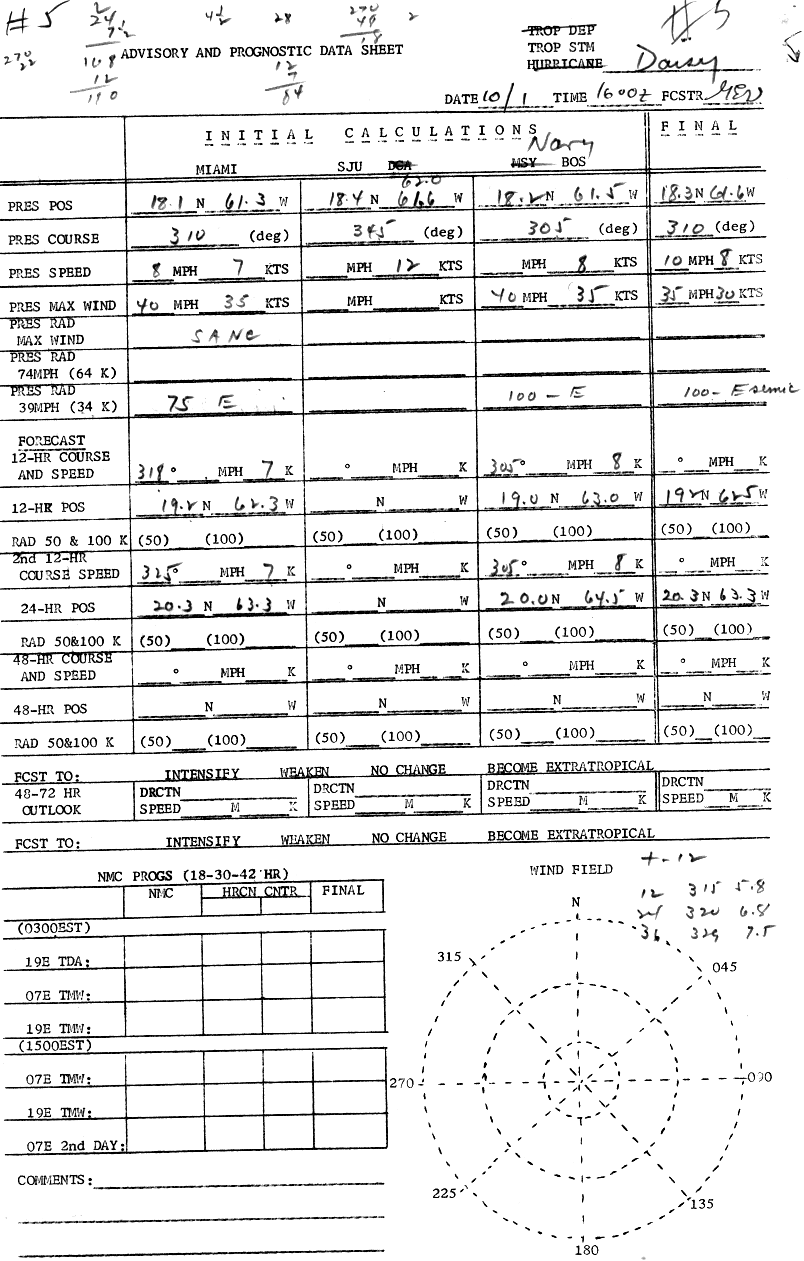 #5 24 7½ 4½ 28 270 2 #5
270 22 108 12 18
ADVISORY AND PROGNOSTIC DATA SHEET
12 7 84
190
TROP DEP
TROP STM
HURRICANE Daisy
DATE 10/1 TIME 1600Z FCSTR
INITIAL CALCULATIONS FINAL
Navy
MIAMI SJU DCA MSY BOS
62.0
PRES POS 18.1 N 61.3 W 18.4 N 61.6 W 18.2 N 61.5 W 18.3 N 61.6 W
PRES COURSE 310 (deg) 345 (deg) 305 (deg) 310 (deg)
PRES SPEED 8 MPH 7 KTS MPH 12 KTS MPH 8 KTS 10 MPH 8 KTS
PRES MAX WIND 40 MPH 35 KTS MPH KTS 40 MPH 35 KTS 35 MPH 30 KTS
PRES RAD
MAX WIND SANE
PRES RAD
74MPH (64 K)
PRES RAD
39MPH (34 K) 75 E 100 - E 100 - E semic
FORECAST
12-HR COURSE
AND SPEED 318° MPH 7 K ° MPH K 305° MPH 8 K ° MPH K
12-HR POS 19.2 N 62.3 W N W 19.0 N 63.0 W 192 N 625 W
RAD 50 & 100 K (50) (100) (50) (100) (50) (100) (50) (100)
2nd 12-HR
COURSE SPEED 325° MPH 7 K ° MPH K 305° MPH 8 K ° MPH K
24-HR POS 20.3 N 63.3 W N W 20.0 N 64.5 W 20.3 N 63.3 W
RAD 50&100 K (50) (100) (50) (100) (50) (100) (50) (100)
48-HR COURSE
AND SPEED ° MPH K ° MPH K ° MPH K ° MPH K
48-HR POS N W N W N W N W
RAD 50&100 K (50) (100) (50) (100) (50) (100) (50) (100)
FCST TO: INTENSIFY WEAKEN NO CHANGE BECOME EXTRATROPICAL
48-72 HR DRCTN DRCTN DRCTN DRCTN
OUTLOOK SPEED M K SPEED M K SPEED M K SPEED M K
FCST TO: INTENSIFY WEAKEN NO CHANGE BECOME EXTRATROPICAL
NMC PROGS (18-30-42 HR)
NMC HRCN CNTR FINAL
(0300EST)
19E TDA:
07E TMW:
19E TMW:
(1500EST)
07E TMW:
19E TMW:
07E 2nd DAY:
COMMENTS:
WIND FIELD
+-12
12 315 5.8
24 320 6.8
36 329 7.5
N
315 045
270 090
225 135
180